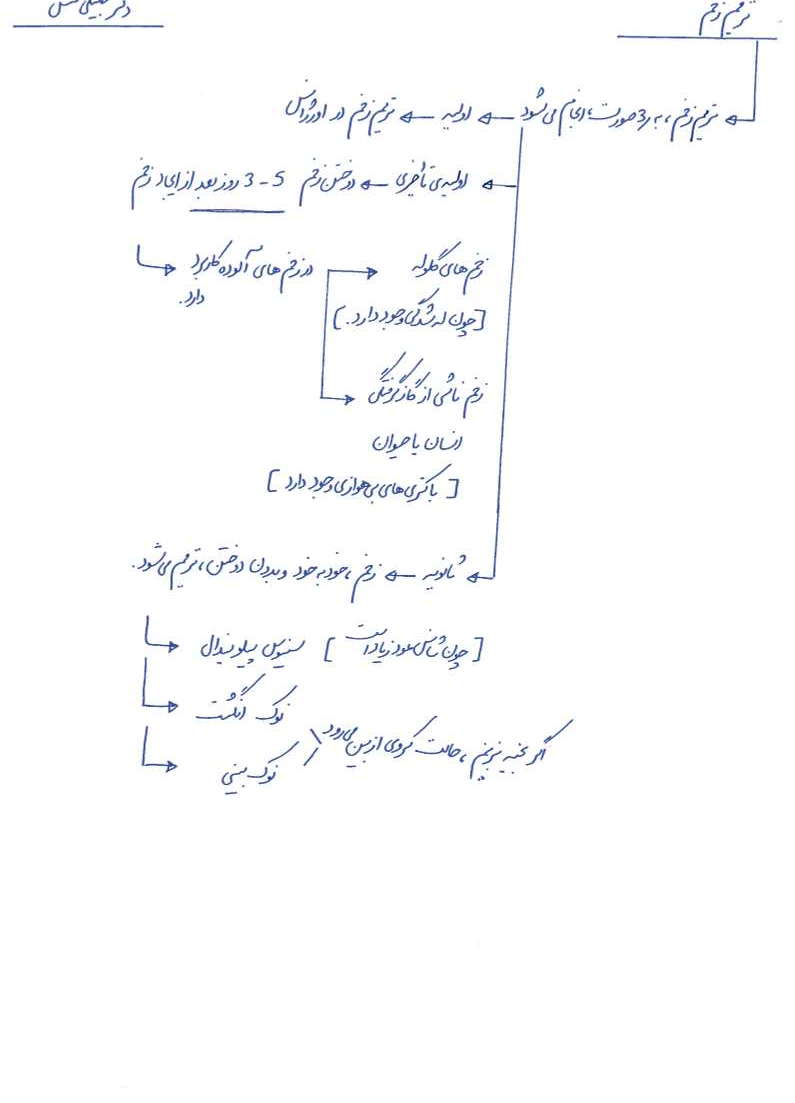 ترمیم زخم
دکتر
ترمیم زخم، به 3 صورت، انجام می‌شود ← اولیه ← ترمیم زخم در اورژانس
← اولیه‌ی تأخیری ← دوختن زخم 5 - 3 روز بعد از ایجاد زخم
در زخم‌های آلوده کاربرد
دارد.
زخم‌های گلوله
[چون له شدگی وجود دارد.]
زخم ناشی از گازگرفتگی
انسان یا حیوان
[باکتری‌های بی‌هوازی وجود دارد]
← ثانویه ← زخم، خود به خود و بدون دوختن، ترمیم می‌شود.
سینوس پیلونیدال [چون شانس عود زیاد است]
نوک انگشت
نوک بینی
اگر بخیه بزنیم، حالت کروی از بین می‌رود